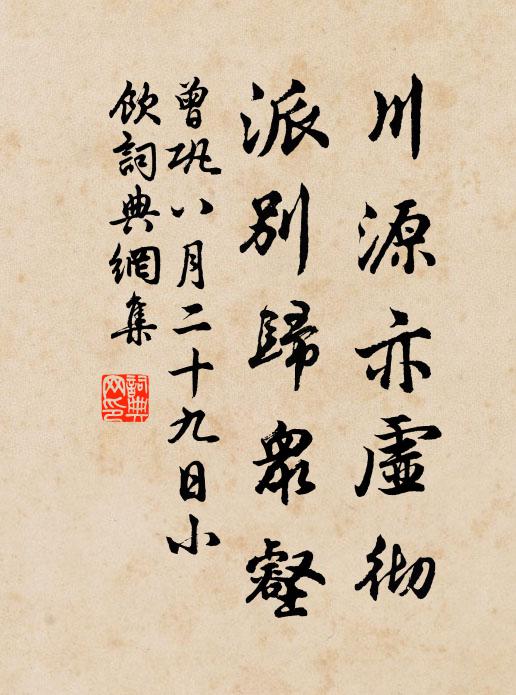 川源亦虛彻
派别歸衆壑
曾巩八月二十九日小
饮詞典網集
詞典
网印